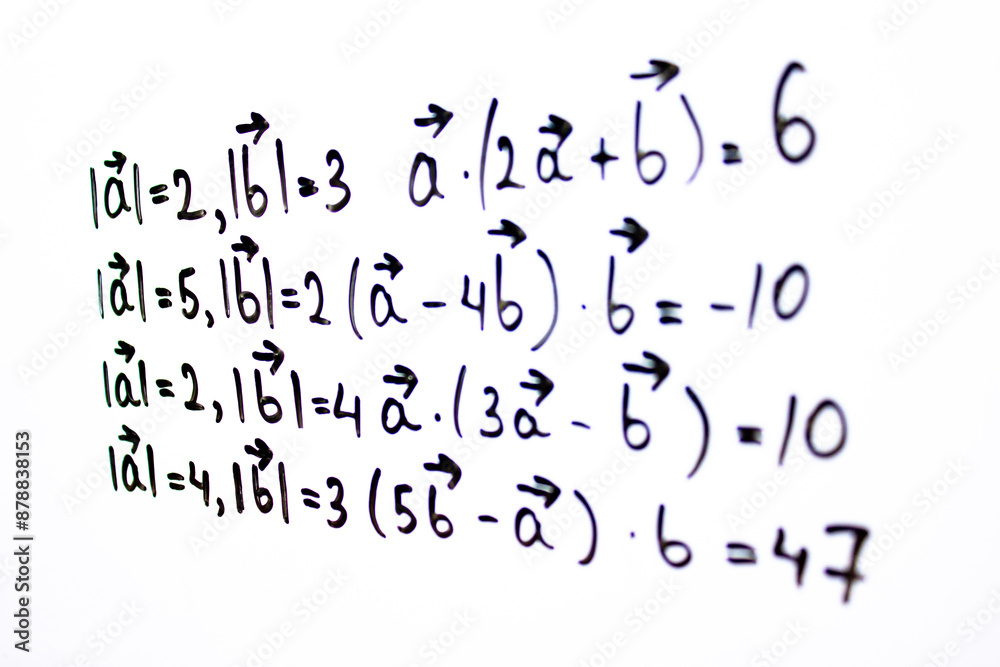 |a⃗|=2, |b⃗|=3 a⃗·(2a⃗+b⃗)=6
|a⃗|=5, |b⃗|=2 (a⃗-4b⃗)·b⃗=-10
|a⃗|=2, |b⃗|=4 a⃗·(3a⃗-b⃗)=10
|a⃗|=4, |b⃗|=3 (5b⃗-a⃗)·b=47
Adobe Stock | #878838153